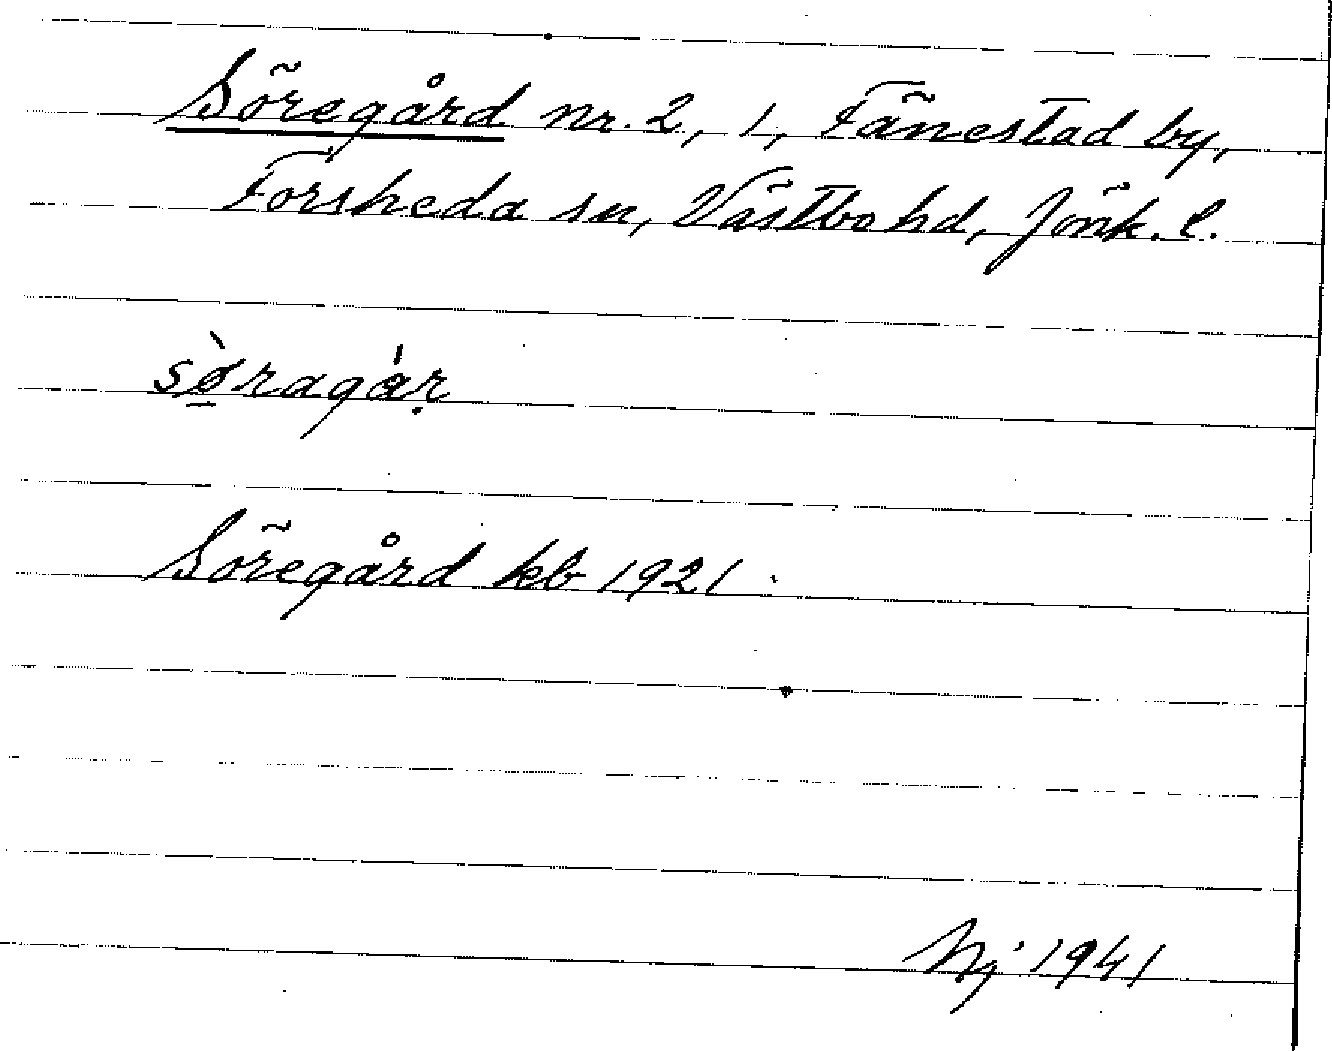 Söregård nr. 2, 1, Fänestad by,
Forsheda sn, Västbo hd, Jönk. l.
sø̠̀ragàṛ
Söregård kb 1921.
Nj 1941